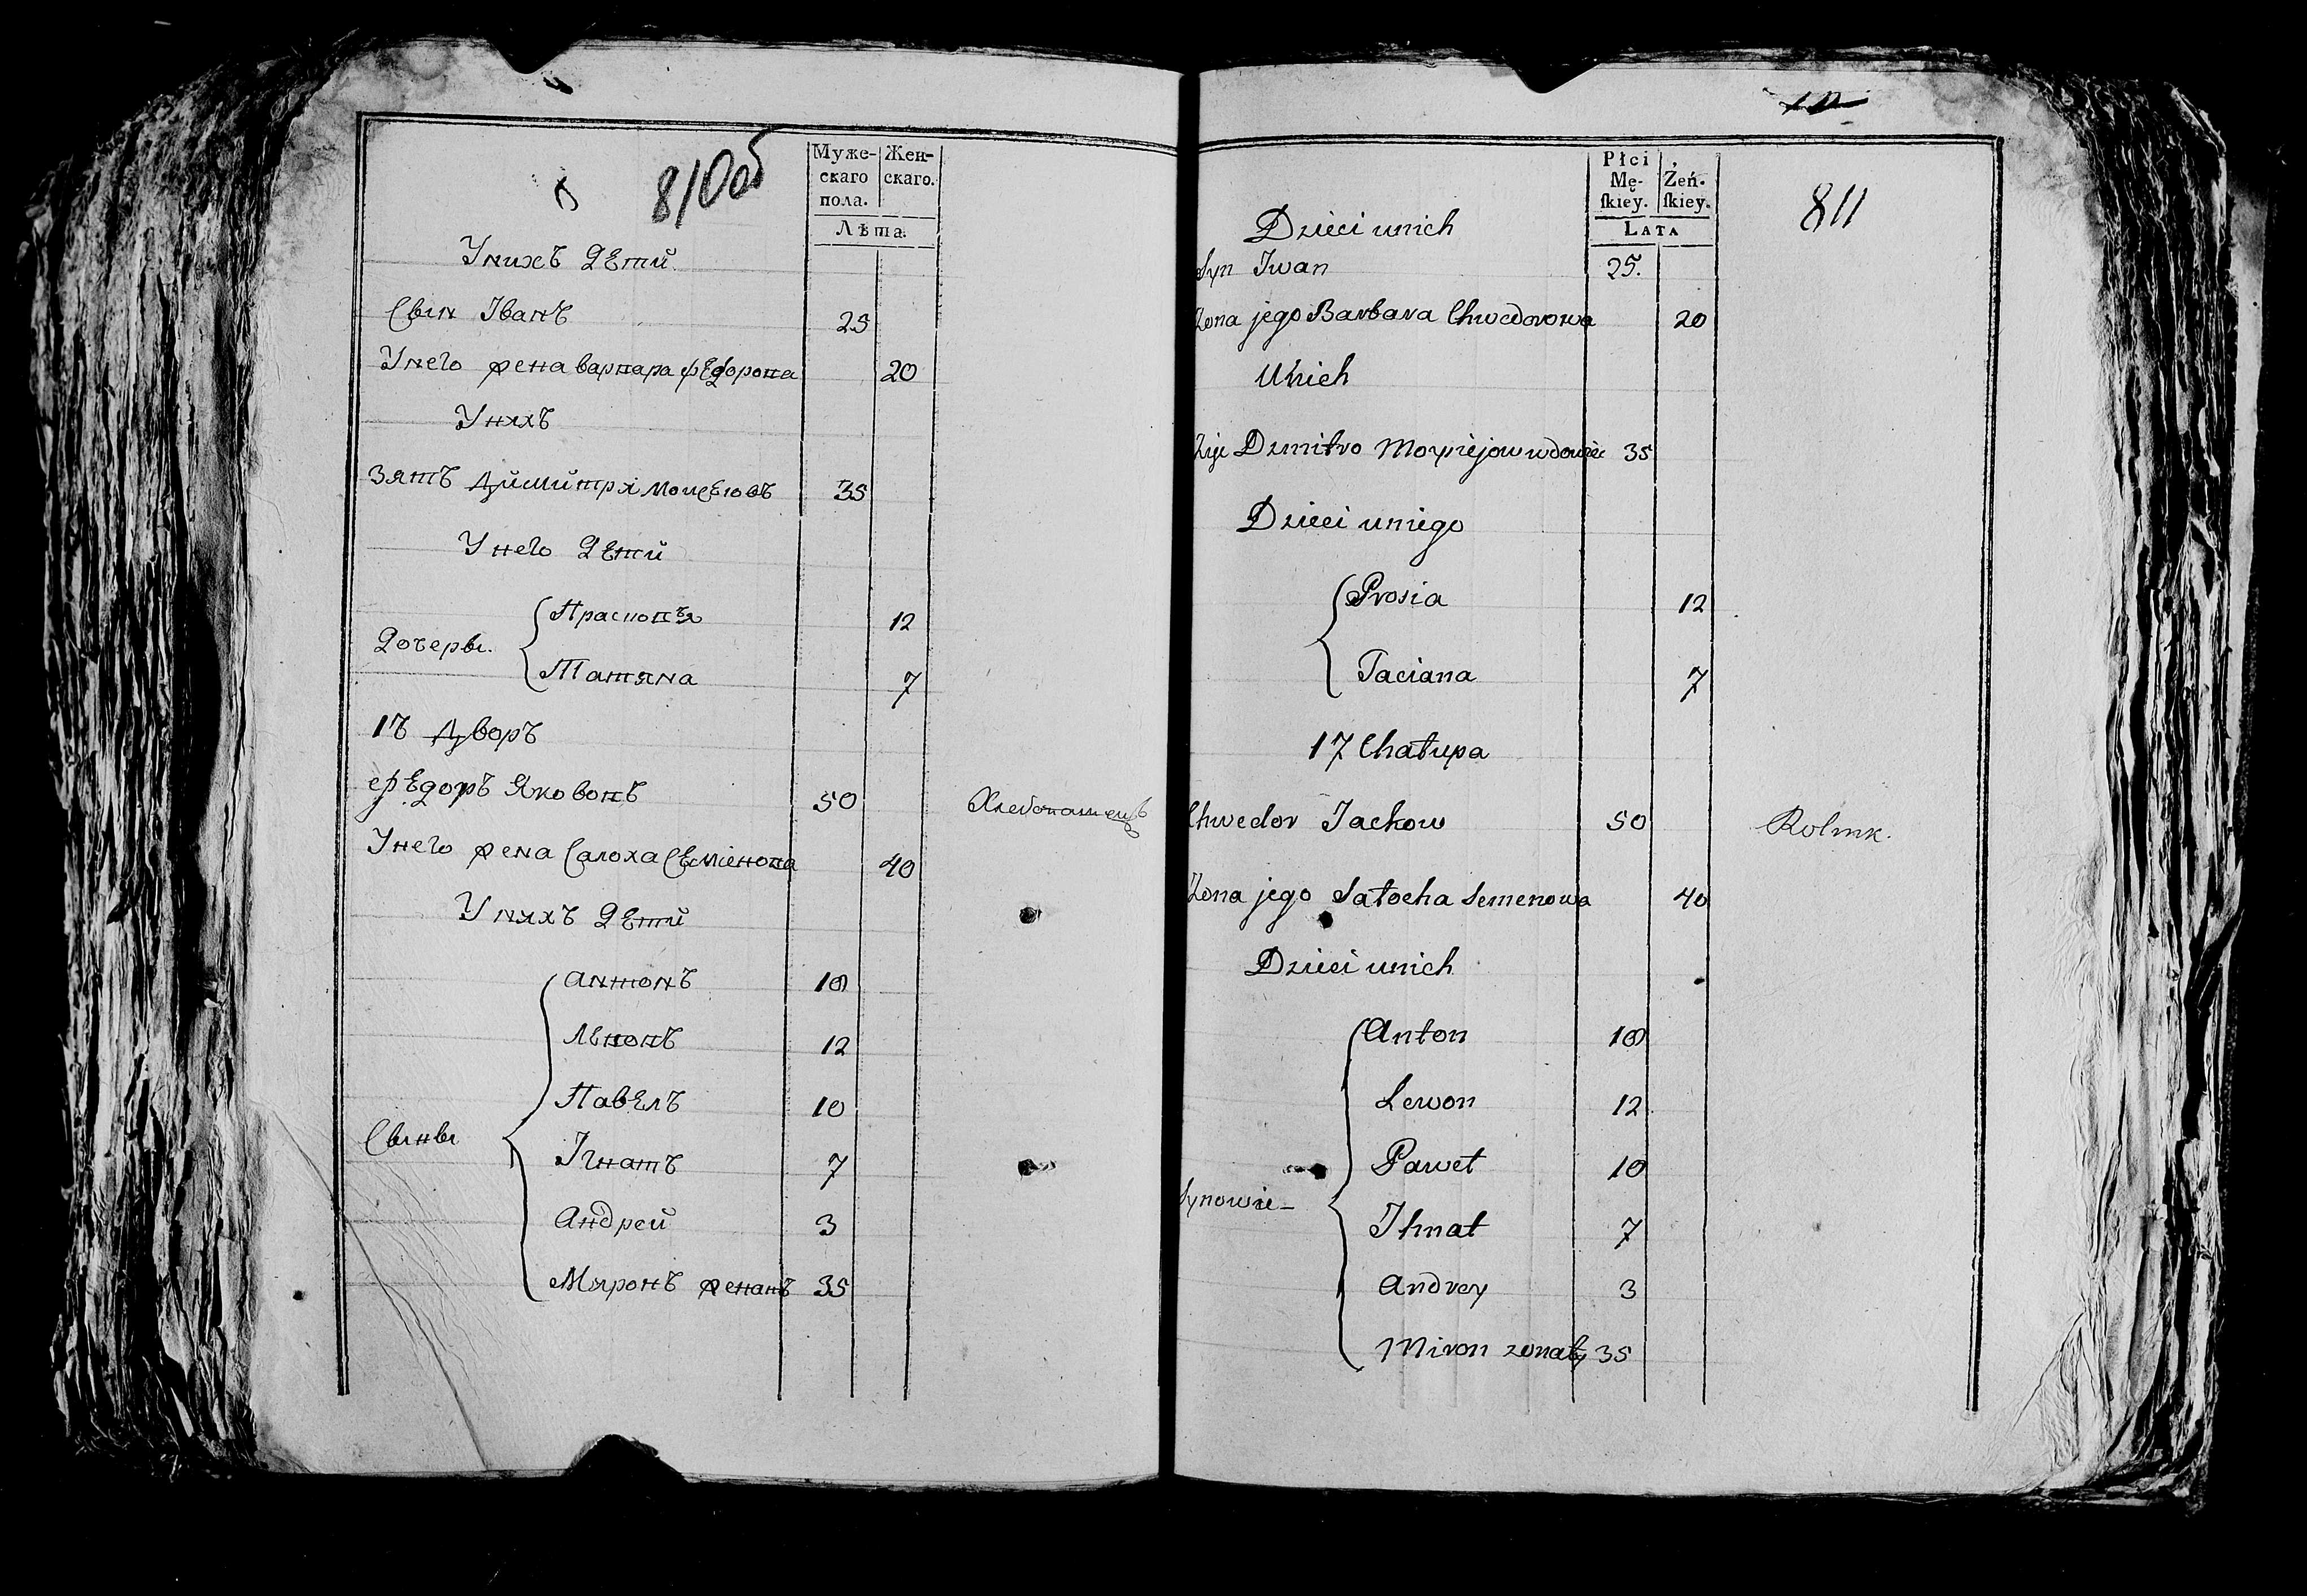 810об
Муже-
скаго
пола.
Жен-
скаго.
Лѣта.
Унихъ Дети
Сын Іванъ 25
Унего жена варвара федорова 20
Унихъ
Зять Димитрі Мосеювъ 35
Унего Дети
Дочеры.
Прасковъя 12
Татяна 7
17 Дворъ
федоръ Якововъ 50 Хлебопашецъ
Унего жена Салоха Семіенова 40
Унихъ Дети
Сыны
Антонъ 18
Левонъ 12
Павелъ 10
Ігнатъ 7
Андрей 3
Миронъ женатъ 35
811
Płci
Mę-
ſkiey.
Żeń-
ſkiey.
LATA
Dzieci unich
Syn Iwan 25.
Zona jego Barbara Chwedorowa 20
Unich
Dzmitro Moysiejow wdowiec 35
Dzieci uniego
Prosia 12
Taciana 7
17 Chałupa
Chwedor Jackow 50 Rolnik.
Zona jego Sałocha Semenowa 40
Dzieci unich
Synowie
Anton 18
Lewon 12
Paweł 10
Ihnat 7
Andrey 3
Miron zonaty 35